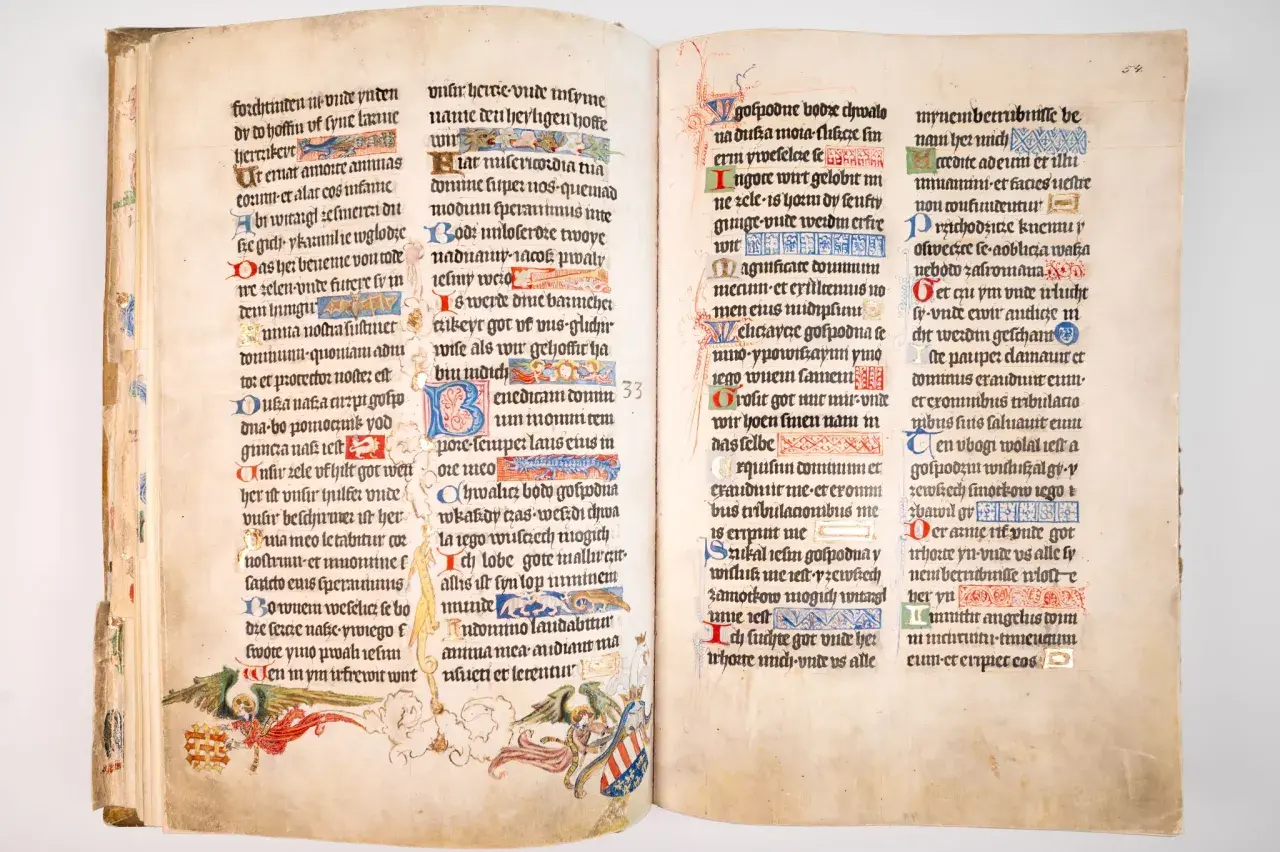 forchtinden in· vnde ynden
dy do hoffin vf syne barme
herczikeyt
Ut eruat a morte animas
eorum· et alat eos in fame
Abi witargl z smerczi du
sze gich· y karmil ie w glodze
Das her beneme von tode
ire zelen· vnde futere sy in
dem hungir
Anima nostra sustinet
dominum· quoniam adiu
tor et protector noster est
Dusza nasza cirzpi gospo
dna· bo pomocznik y od
gimcza nasz iest
Unsir zele vf hilt got wen
her ist vnsir hulfer vnde
vnsir beschirmer ist her·
Quia in eo letabitur cor
nostrum· et in nomine s
sancto eius sperauimus
Bo w nem weselicz se bo
dze sercze nasze· y w iego s
swote ymo pwali iesmi
Wen in ym irfrewit wirt
vnsir hercze· vnde in syme
name den heyligen hoffe
wir
Fiat misericordia tua
domine super nos· quemad
modum sperauimus in te
Bodz miloserdze twoye
na d nami· iacosz pwaly
iesmy w cze
Is werde dine barmeher
czikeyt got vf vns· glichir
wise als wir gehoffit ha
bin in dich
33
Benedicam domi
num in omni tem
pore· semper laus eius in
ore meo
Chwalicz bodo gospodna
w kaszdy czas· weszdi chwa
la iego w usczech mogich
Ich lobe gote in allir czit·
allis ist syn lop in minem
munde
In domino laudabitur
anima mea· audiant ma
nsueti et letentur
54
W gospodne bodze chwalo
na dusza moia· slisczcze sm
erni y weselcze se
In gote wirt gelobit mi
ne zele· is horin dy senfty
ginge· vnde werdin erfre
wit
Magnificate dominum
mecum· et exaltemus no
men eius in id ipsum
Weliczaycze gospodna se
mno· y powiszaymi ymo
iego w uem samem
Grosit got mit mir· vnde
wir hoen sinen nam in
das selbe
Exquisiui dominum et
exaudiuit me· et ex omni
bus tribulacionibus me
is eripuit me
Szukal iesm gospodna y
wisluszal me iest· y ze wszech
zamotkow mogich witargl
mne iest
Ich suchte got vnde her
irhorte mich· vnde vs alle
mynem betrubnisse be
nam her mich
Accedite ad eum et illu
minamini· et facies uestre
non confundentur
Przichodzicze k niemu y
oswecze se· a oblicza wasza
ne bodo zasromana
Get czu ym vnde irlucht
sy· vnde ewir antlicze ni
cht werdin geschant
Iste pauper clamauit et
dominus exaudiuit eum·
et ex omnibus tribulacio
nibus suis saluauit eum
Ten vbogi wolal iest a
gospodzin wisluszal gy· y
ze wszech smotkow iego z
zbawil gy
Der arme rif vnde got
irhorte yn· vnde vs alle sy
nem betrubnisse irlost-e
her yn
Inmittit angelus domi
ni in circuitu· timencium
eum· et eripiet eos